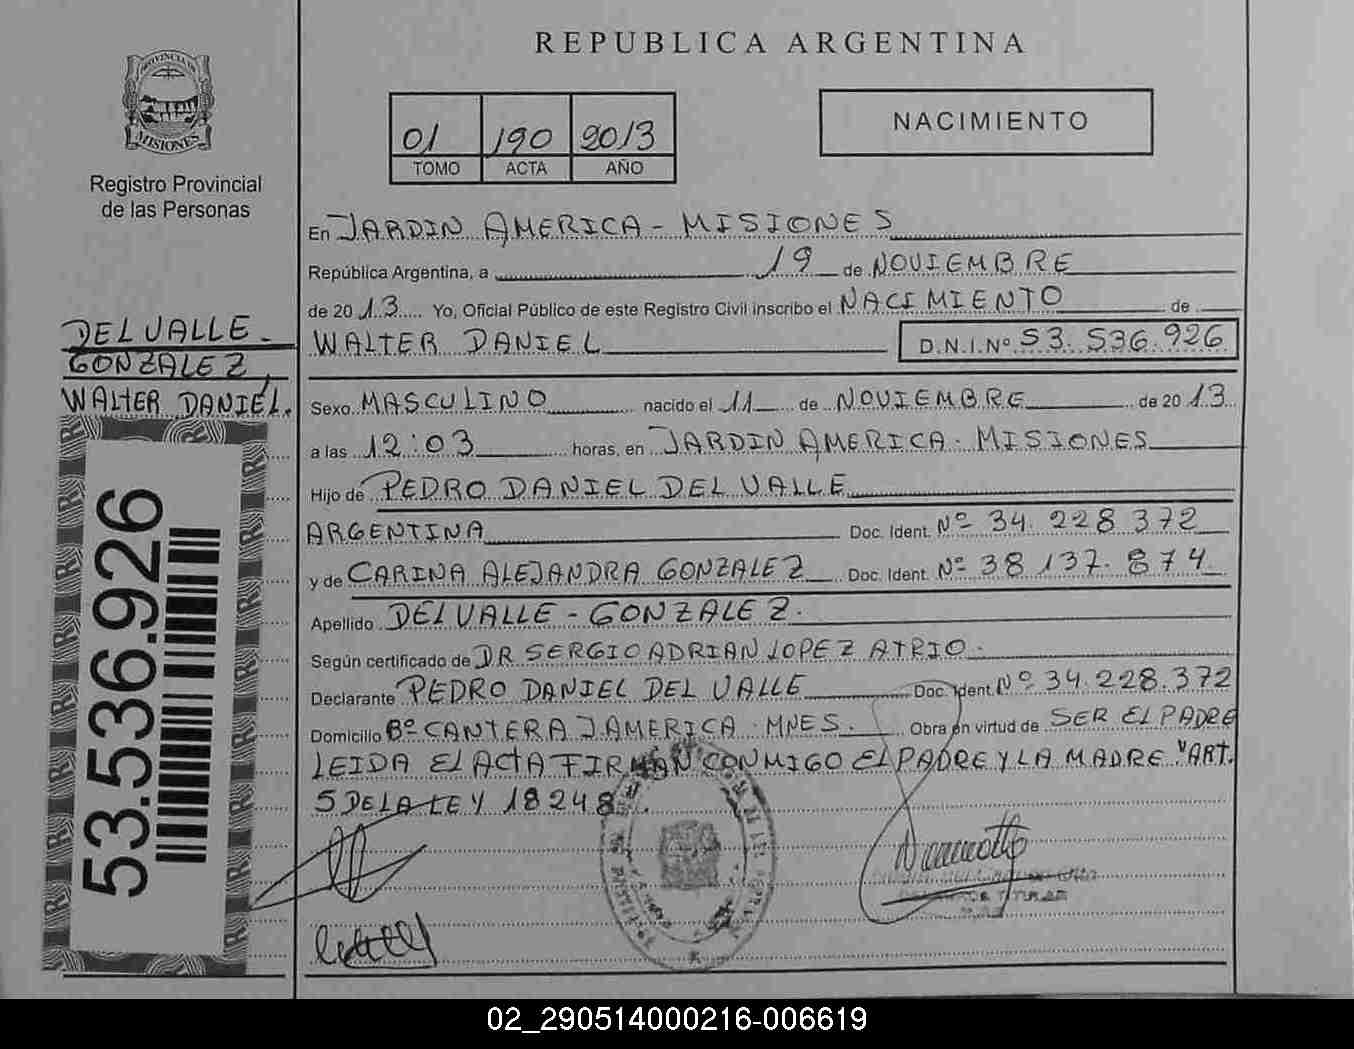 REPUBLICA ARGENTINA
PROVINCIA DE
MISIONES
Registro Provincial
de las Personas
01 190 2013
TOMO ACTA AÑO
NACIMIENTO
En JARDIN AMERICA - MISIONES
República Argentina, a 19 de NOVIEMBRE
de 2013 Yo, Oficial Público de este Registro Civil inscribo el NACIMIENTO de
WALTER DANIEL D.N.I.Nº 53.536.926
DEL VALLE -
GONZALEZ,
WALTER DANIEL.
53.536.926
Sexo MASCULINO nacido el 11 de NOVIEMBRE de 2013
a las 12:03 horas, en JARDIN AMERICA - MISIONES
Hijo de PEDRO DANIEL DEL VALLE
ARGENTINA Doc. Ident. Nº 34.228.372
y de CARINA ALEJANDRA GONZALEZ Doc. Ident. Nº 38.137.874
Apellido DEL VALLE - GONZALEZ.
Según certificado de DR SERGIO ADRIAN LOPEZ ATRIO.
Declarante PEDRO DANIEL DEL VALLE Doc. Ident. Nº 34.228.372
Domicilio Bº CANTERA J AMERICA - MNES. Obra en virtud de SER EL PADRE
LEIDA EL ACTA FIRMAN CONMIGO EL PADRE Y LA MADRE "ART.
5 DE LA LEY 18248".
02_290514000216-006619